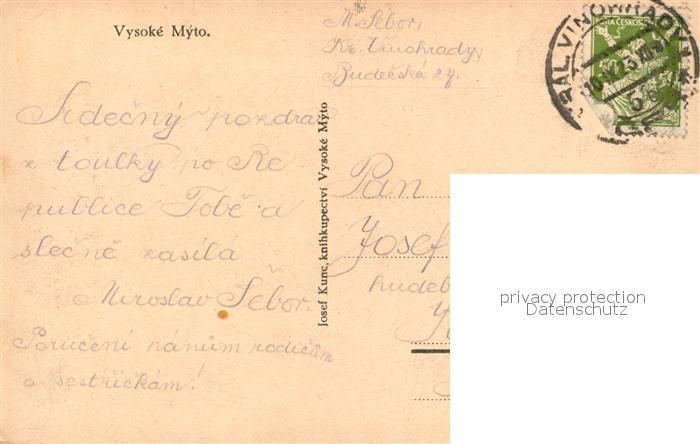 Vysoké Mýto.
M. Šebor,
Kr. Vinohrady,
Budečská
POŠTA ČESKO
50
KRÁL. VINOHRADY
Srdečný pozdrav
z toulky po Re
publice Tobě a
slečně zasílá
Miroslav Šebor.
Poručení pánům rodičům
a sestřičkám!
Josef Kunc, knihkupectví Vysoké Mýto
Pan
Josef
hudeb
privacy protection
Datenschutz